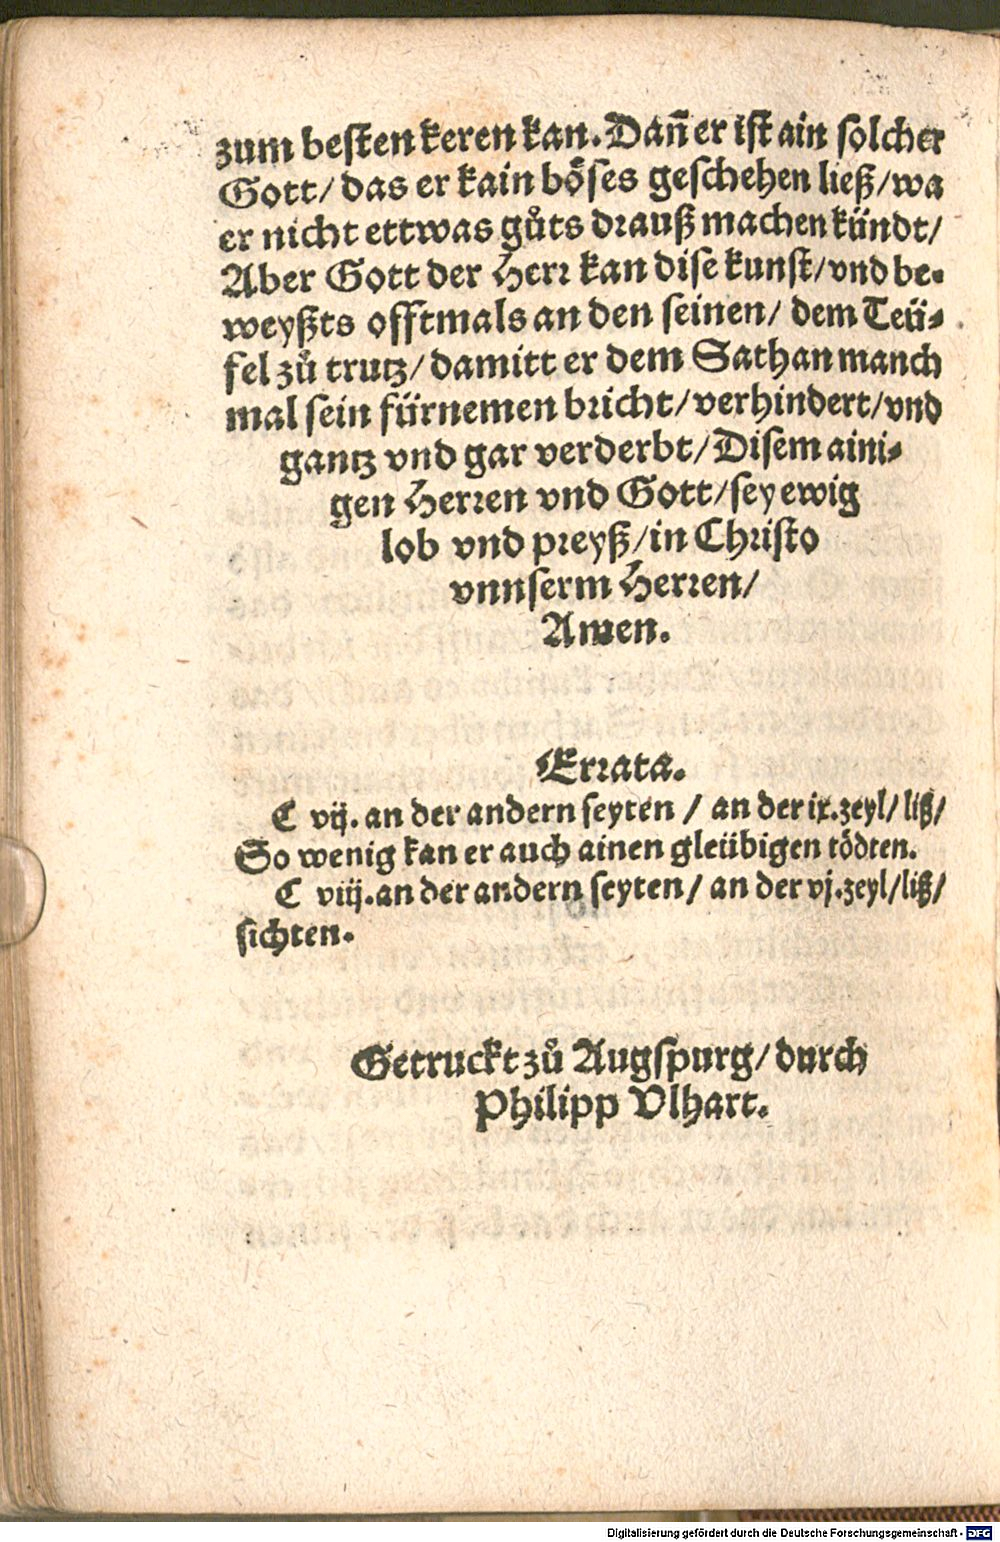 zum besten keren kan. Dañ er ist ain solcher
Gott/ das er kain böses geschehen ließ/ wa
er nicht ettwas gůts drauß machen kündt/
Aber Gott der Herr kan dise kunst/ vnd be-
weyßts offtmals an den seinen/ dem Teü-
fel zů trutz/ damitt er dem Sathan manch
mal sein fürnemen bricht/ verhindert/ vnd
gantz vnd gar verderbt/ Disem aini-
gen Herren vnd Gott/ sey ewig
lob vnd preyß/ in Christo
vnnserm Herren/
Amen.
Errata.
C vij. an der andern seyten / an der ix. zeyl/ liß/
So wenig kan er auch ainen gleübigen tödten.
C viij. an der andern seyten/ an der vj. zeyl/ liß/
sichten.
Getruckt zů Augspurg/ durch
Philipp Vlhart.
Digitalisierung gefördert durch die Deutsche Forschungsgemeinschaft - DFG